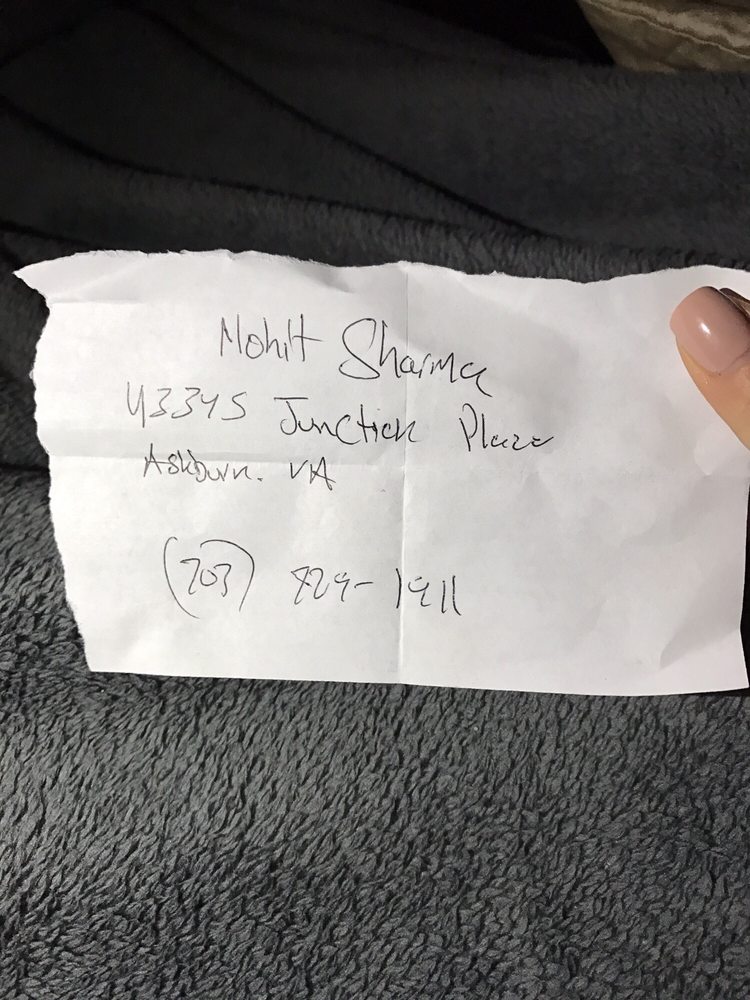 Mohit Sharma
43345 Junction Plaza
Ashburn. VA
(703) 829-1911